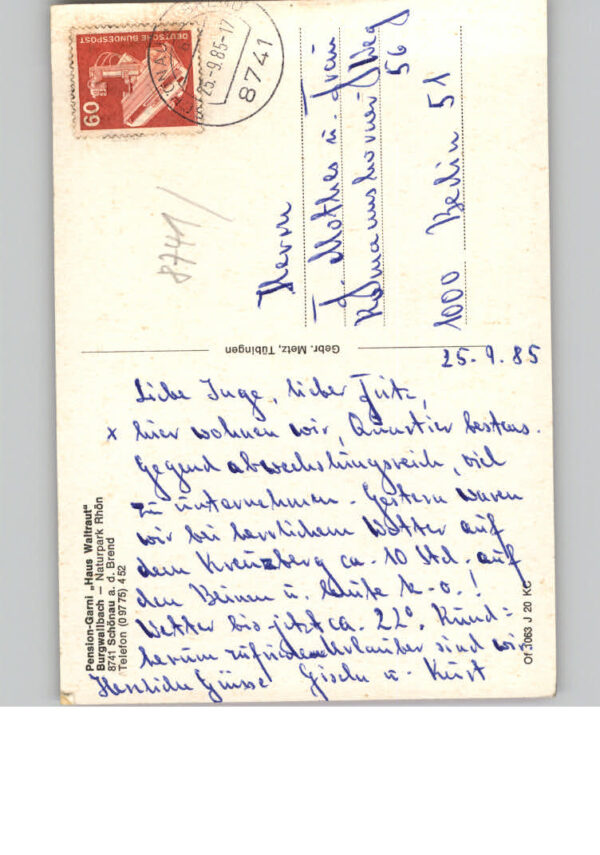 DEUTSCHE BUNDESPOST
60
25.-9.85-17
8741
8741/
Herrn
F. Mothes u. Frau
Weg
56
1000 Berlin 51
Gebr. Metz, Tübingen
25.9.85
Liebe Inge, lieber Fritz,
x hier wohnen wir, Quartier bestens.
Gegend abwechslungsreich, viel
zu unternehmen. Gestern waren
wir bei herrlichem Wetter auf
dem Kreuzberg ca. 10 Std. auf
den Beinen u. heute k.o.!
Wetter bis jetzt ca. 22°. Rund=
herum zufriedene Urlauber sind wir
Herzliche Grüsse Gisela u. Kurt
Pension-Garni „Haus Waltraut"
Burgwallbach – Naturpark Rhön
8741 Schönau a. d. Brend
Telefon (0 97 75) 4 52
Of 3063 J 20 KC